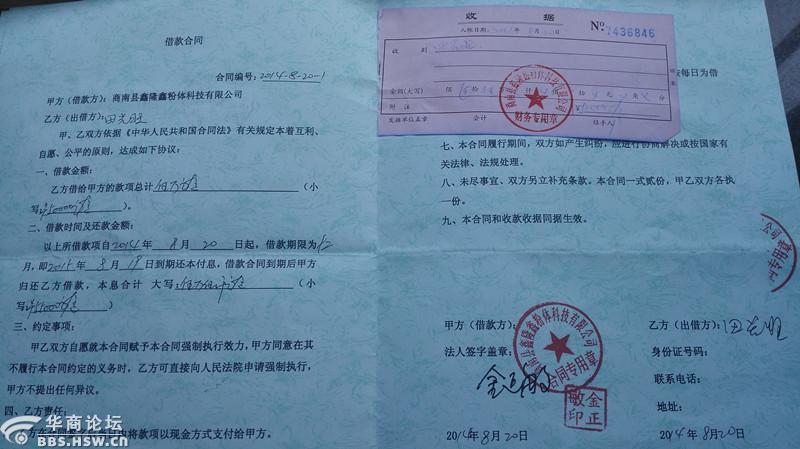 借款合同
合同编号：2014-8-20-1
甲方（借款方）：商南县鑫隆鑫粉体科技有限公司
乙方（出借方）：
甲、乙双方依据《中华人民共和国合同法》有关规定本着互利、
自愿、公平的原则，达成如下协议：
一、借款金额：
乙方借给甲方的款项总计（小
写：
）。
二、借款时间及还款金额：
以上所借款项自2014年8月20日起，借款期限为12
月，即2015年8月19日到期还本付息，借款合同到期后甲方
归还乙方借款，本息合计 大写：（小
写：
）
三、约定事项：
甲乙双方自愿就本合同赋予本合同强制执行效力，甲方同意在其
不履行本合同约定的义务时，乙方可直接向人民法院申请强制执行，
甲方不提出任何异议。
四、乙方责任：
将款项以现金方式支付给甲方。
收 据
入帐日期：
№ 7436846
收到
金额(大写)
附注
发据单位盖章
会计
经手人
财务专用章
按每日为借
七、本合同履行期间，双方如产生纠纷，应进行协商解决或按国家有
关法律、法规处理。
八、未尽事宜、双方另立补充条款。本合同一式贰份，甲乙双方各执
一份。
九、本合同和收款收据同据生效。
甲方（借款方）：
法人签字盖章：
商南县鑫隆鑫粉体科技有限公司
合同专用章
金正敏印
2014年8月20日
乙方（出借方）：
身份证号码：
联系电话：
地址：
2014年8月20日
公司
专用章
华商论坛
BBS.HSW.CN